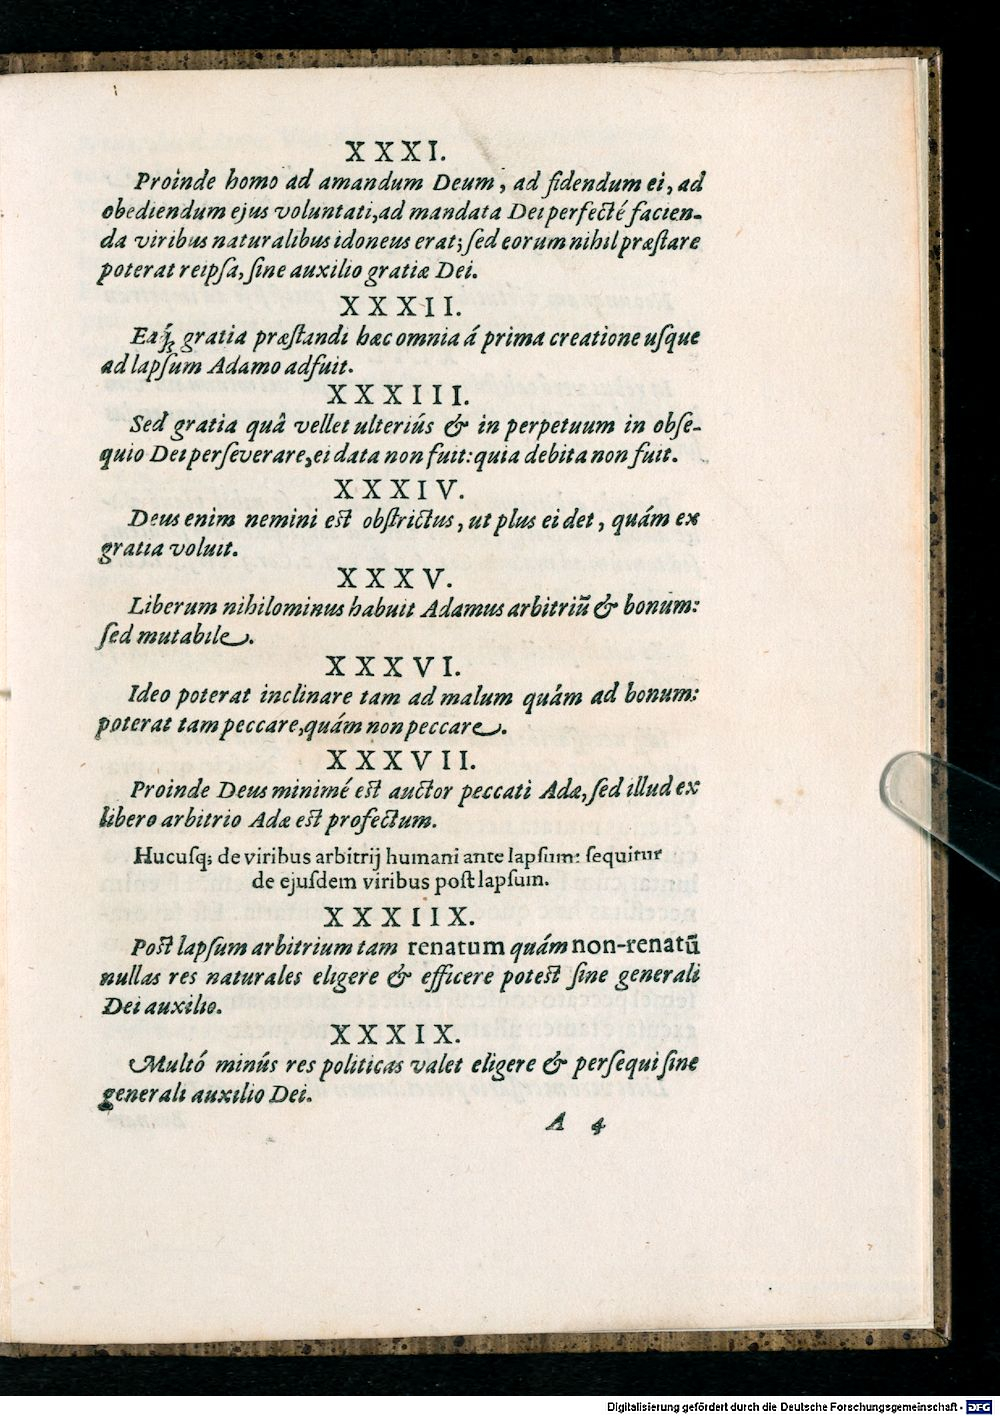 XXXI.
Proinde homo ad amandum Deum, ad fidendum ei, ad
obediendum ejus voluntati, ad mandata Dei perfectè facien-
da viribus naturalibus idoneus erat; sed eorum nihil præstare
poterat reipsa, sine auxilio gratiæ Dei.
XXXII.
Eaq́; gratia præstandi hæc omnia á prima creatione usque
ad lapsum Adamo adfuit.
XXXIII.
Sed gratia quâ vellet ulteriús & in perpetuum in obse-
quio Dei perseverare, ei data non fuit: quia debita non fuit.
XXXIV.
Deus enim nemini est obstrictus, ut plus ei det, quám ex
gratia voluit.
XXXV.
Liberum nihilominus habuit Adamus arbitriũ & bonum:
sed mutabile.
XXXVI.
Ideo poterat inclinare tam ad malum quám ad bonum:
poterat tam peccare, quám non peccare.
XXXVII.
Proinde Deus minimé est auctor peccati Adæ, sed illud ex
libero arbitrio Adæ est profectum.
Hucusq; de viribus arbitrij humani ante lapsum: sequitur
de ejusdem viribus post lapsum.
XXXIIX.
Post lapsum arbitrium tam renatum quám non-renatũ
nullas res naturales eligere & efficere potest sine generali
Dei auxilio.
XXXIX.
Multó minús res politicas valet eligere & persequi sine
generali auxilio Dei.
A 4
Digitalisierung gefördert durch die Deutsche Forschungsgemeinschaft - DFG